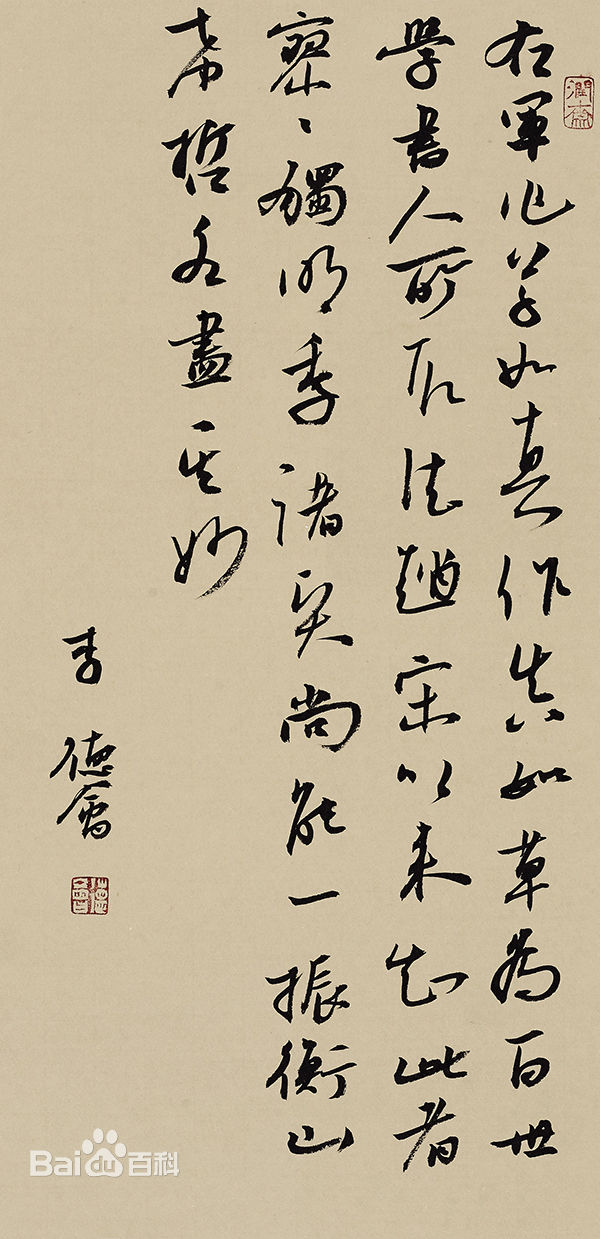 右軍作草如真作真如草為百世
學書人所取法趙宋以來知此者
寥々獨明季諸賢尚能一振衡山
希哲各盡其妙
李
德
Bai百科